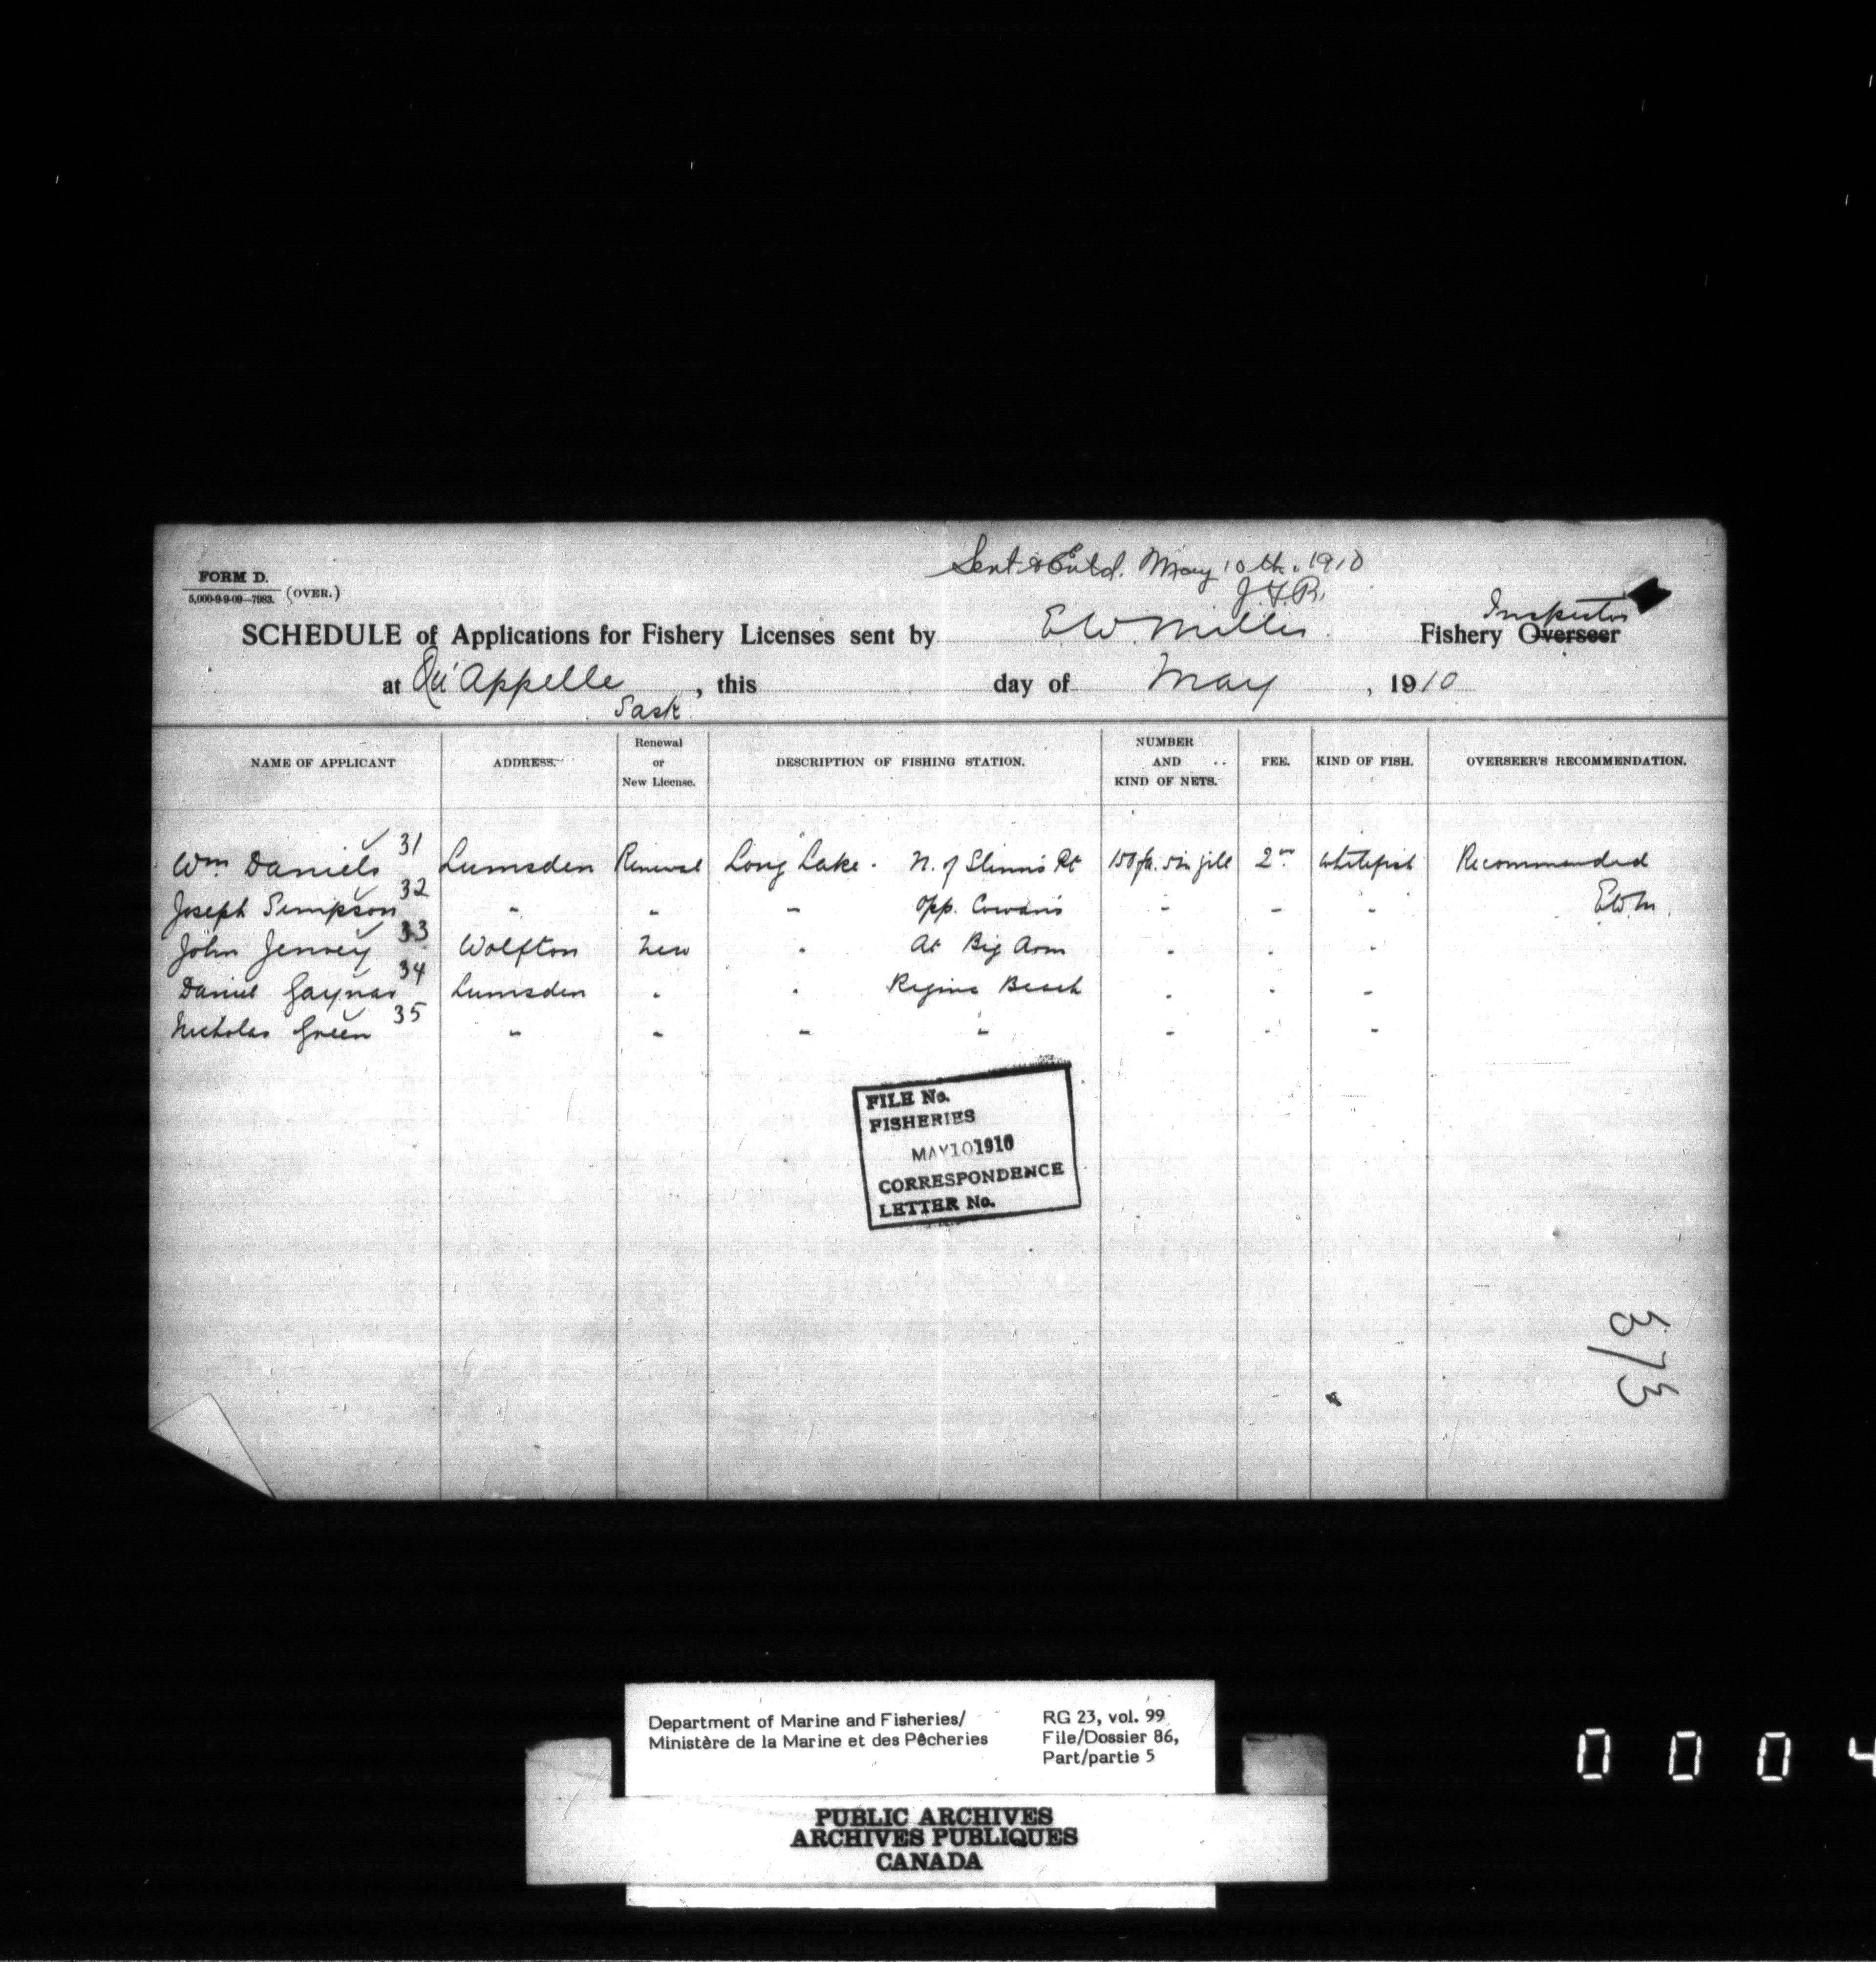 Sent & Entd. May 10th. 1910
J.F.R.
FORM D.
5,000-9-9-09—7983. (OVER.)
Inspector
SCHEDULE of Applications for Fishery Licenses sent by E W Miller Fishery Overseer
at Qu'Appelle, this day of May, 1910
Sask.
NAME OF APPLICANT ADDRESS. Renewal or New License. DESCRIPTION OF FISHING STATION. NUMBER AND KIND OF NETS. FEE. KIND OF FISH. OVERSEER'S RECOMMENDATION.
Wm Daniels 31 Lumsden Renewal Long Lake. N. of Pt 150 fa. 5 in gill 2 00 Whitefish Recommended
Joseph Simpson 32 " " " Opp. Cowan's " " " EWM.
John 33 Wolfton New " At Big Arm " " "
Daniel Gaynor 34 Lumsden " " Regina Beach " " "
Nicholas Green 35 " " " " " " "
FILE No.
FISHERIES
MAY 10 1910
CORRESPONDENCE
LETTER No.
573
Department of Marine and Fisheries/ RG 23, vol. 99
Ministère de la Marine et des Pêcheries File/Dossier 86,
Part/partie 5
PUBLIC ARCHIVES
ARCHIVES PUBLIQUES
CANADA
0 0 0 4